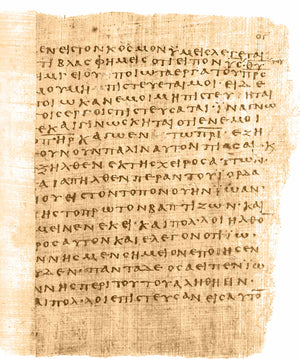 ΟΓ
ΕΝ ΕΙΣ ΤΟΝ ΚΟΣΜΟΝ ΥΜΕΙΣ ΛΕΓΕΤΑΙ
ΤΙ ΒΛΑΣΦΗΜΕΙΣ ΟΤΙ ΕΙΠΟΝ ΥΣ ΘΥ
ΙΜΙ ΕΙ ΟΥ ΠΟΙΩ ΤΑ ΕΡΓΑ ΤΟΥ ΠΡΣ
ΜΟΥ ΜΗ ΠΙΣΤΕΥΕΤΑΙ ΜΟΙ ΕΙ ΔΕ
ΠΟΙΩ ΚΑΝ ΕΜΟΙ ΜΗ ΠΙΣΤΕΥΗΤΑΙ
ΤΟΙΣ ΕΡΓΟΙΣ ΠΙΣΤΕΥΣΑΤΑΙ ΙΝΑ ΓΝΩ
ΤΕ ΚΑΙ ΓΙΝΩΣΚΗΤΑΙ ΟΤΙ ΕΝ ΕΜΟΙ
Ο ΠΗΡ ΚΑΓΩ ΕΝ ΤΩ ΠΡΙ ΕΖΗ
ΟΥΝ ΟΥΝ ΠΑΛΙΝ ΑΥΤΟΝ ΠΙΑΣΑΙ Κ
ΕΞΗΛΘΕΝ ΕΚ ΤΗΣ ΧΕΙΡΟΣ ΑΥΤΩ
ΑΙ ΑΠΗΛΘΕΝ ΠΕΡΑΝ ΤΟΥ ΙΟΡΔΑ
ΟΥ ΕΙΣ ΤΟΝ ΤΟΠΟΝ ΟΥ ΗΝ ΙΩΑΝ
ΗΣ ΤΟ ΠΡΩΤΟΝ ΒΑΠΤΙΖΩΝ ΚΑΙ
ΜΕΙΝΕΝ ΕΚΕΙ ΚΑΙ ΠΟΛΛΟΙ ΗΛΘΟ
ΡΟΣ ΑΥΤΟΝ ΚΑΙ ΕΛΕΓΟΝ ΟΤΙ ΙΩ
ΝΗΣ ΜΕΝ ΣΗΜΕΙΟΝ ΕΠΟΙΗΣΕΝ
ΔΕ ΕΝ ΠΑΝΤΑ ΔΕ ΟΣΑ ΕΙΠΕΝ ΙΩ
ΝΗΣ ΠΕΡΙ ΤΟΥΤΟΥ ΑΛΗΘΗ ΗΝ
ΑΙ ΠΟΛΛΟΙ ΕΠΙΣΤΕΥΣΑΝ ΕΙΣ ΑΥΤΟ